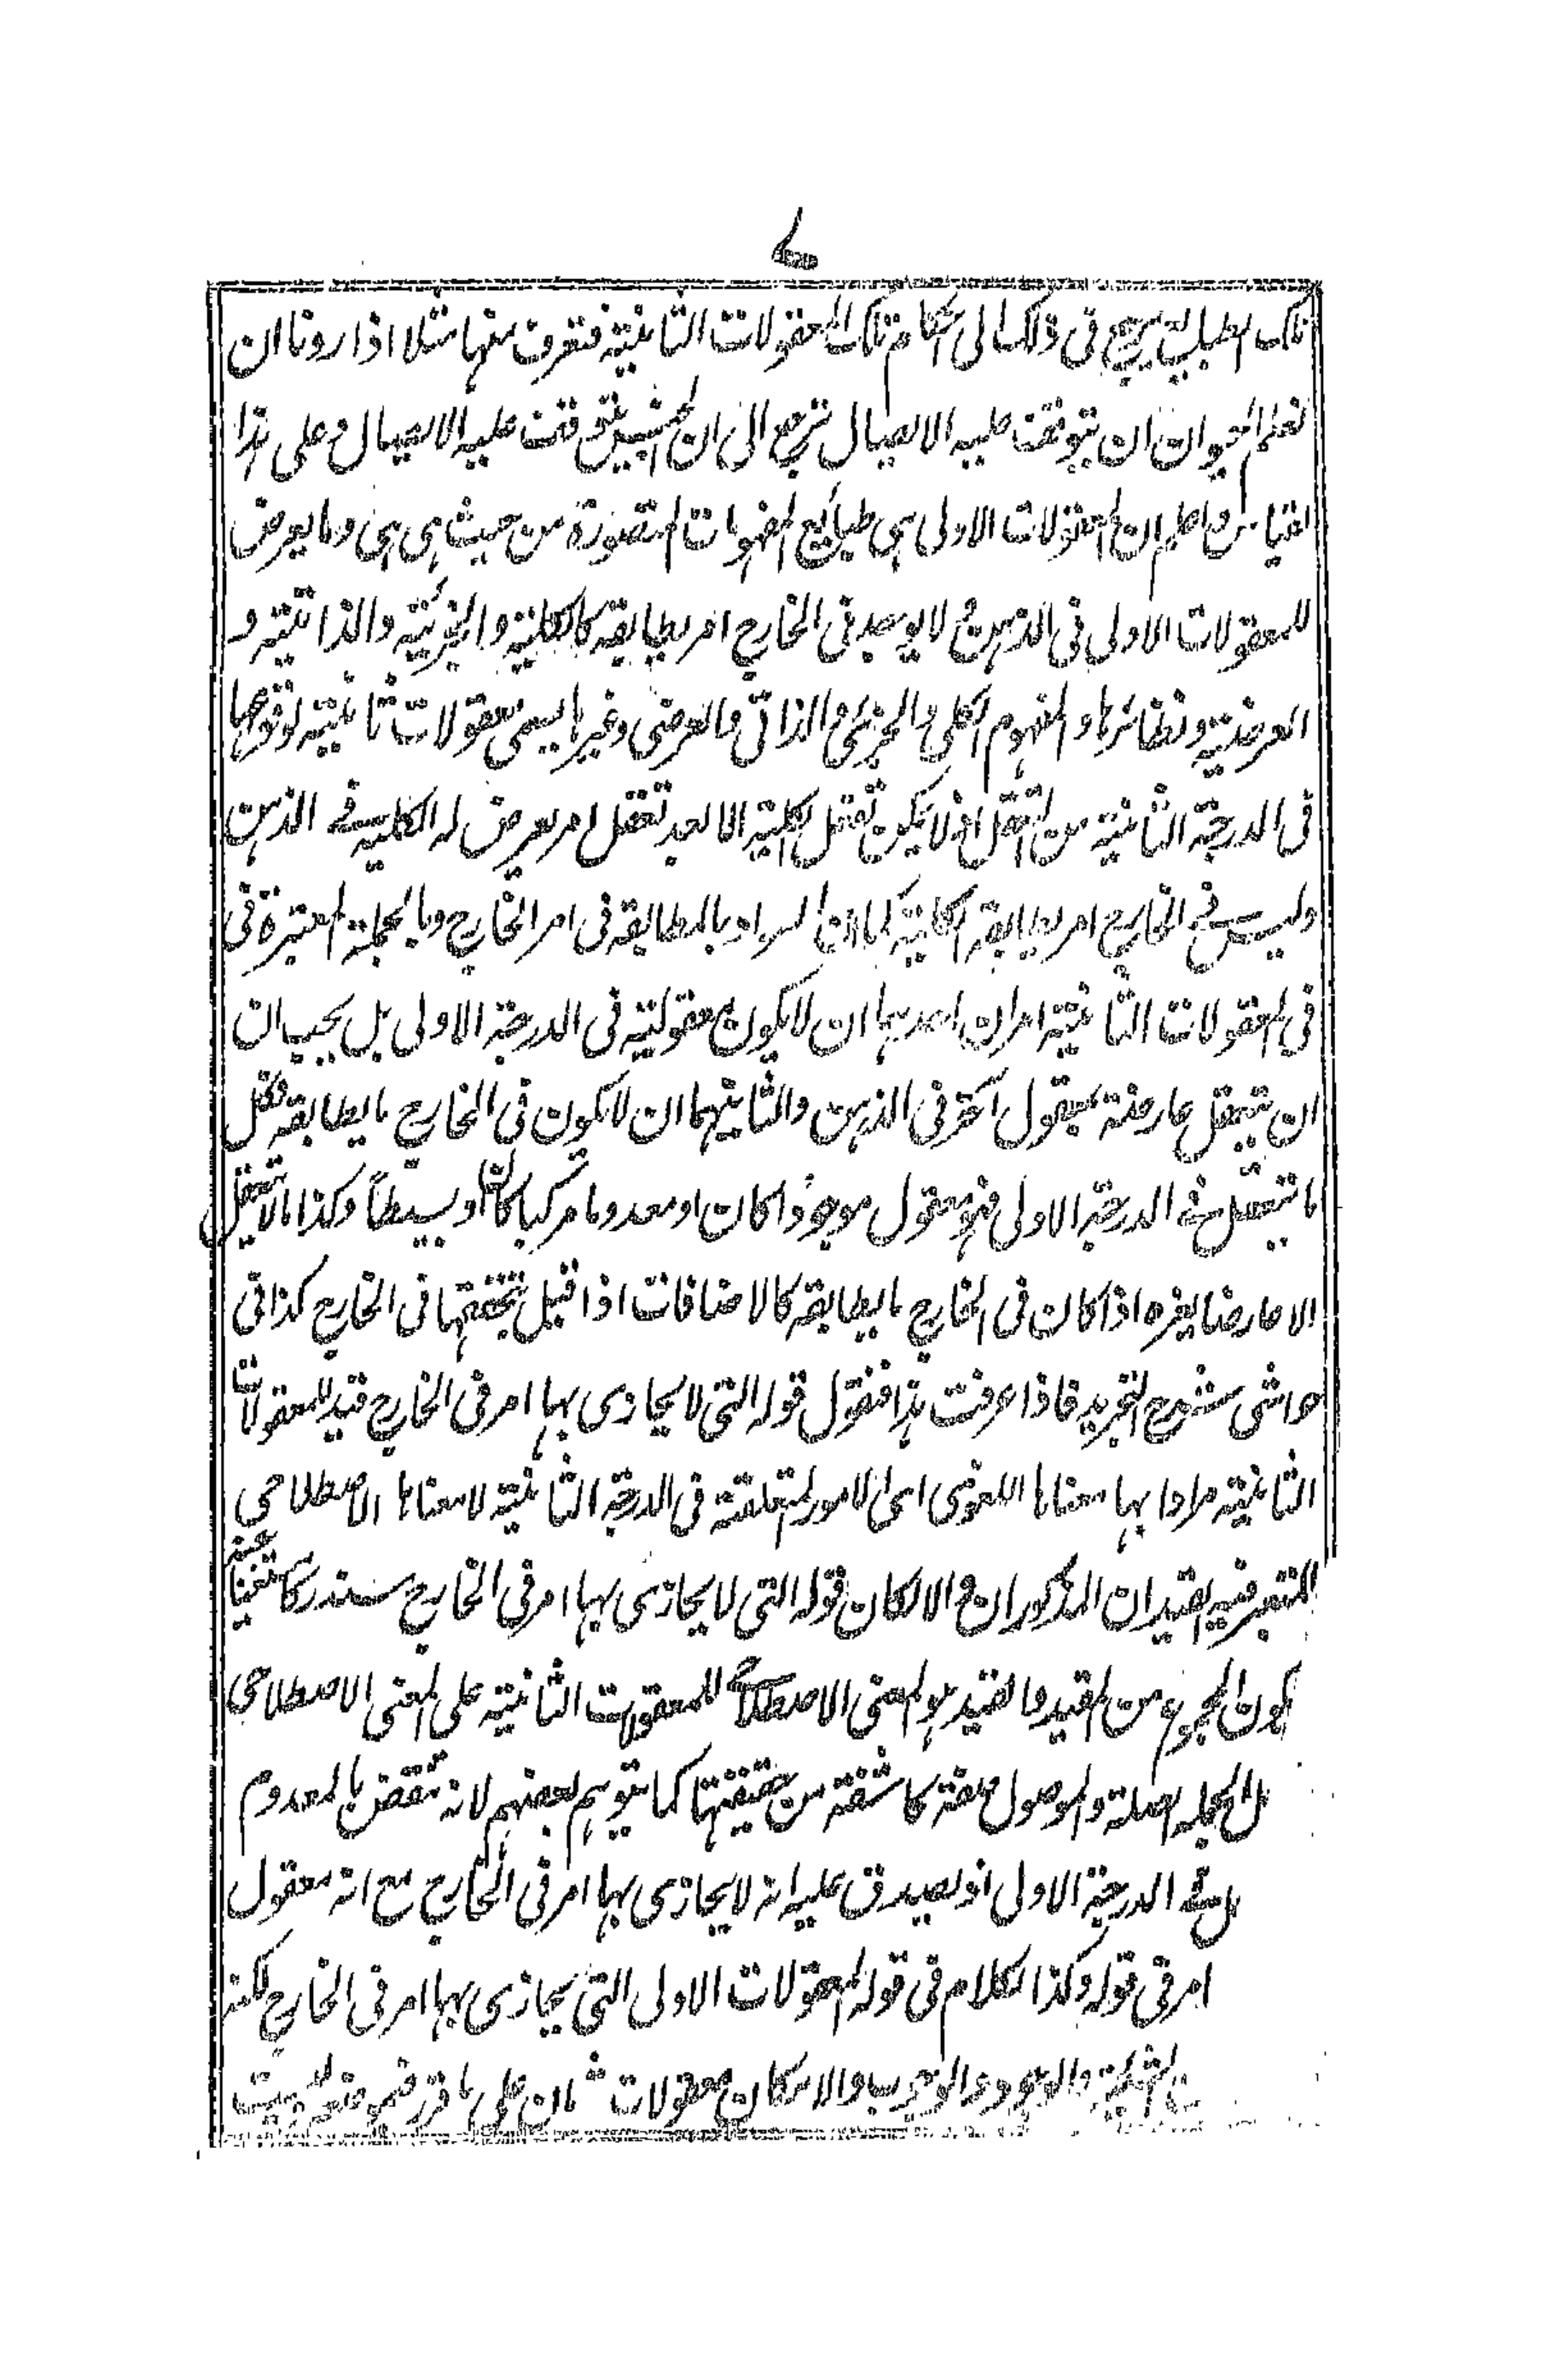 ٧
تلك المطالب يرجع فى ذلك الى احكام تلك المعقولات الثانية فتعرف منها مثلا اذا اردنا ان
نعلم الحيوان ان يتوقف عليه الايصال نرجع الى ان الجنس يتوقف عليه الايصال وعلى هذا
القياس واعلم ان المعقولات الاولى هى طبايع المفهومات المتصورة من حيث هى هى وما يعرض
للمعقولات الاولى فى الذهن ولا يوجد فى الخارج امر يطابقه كالكلية والجزئية والذاتية و
العرضية ونظائرها والمفهوم الكلى والجزئى والذاتى والعرضى وغيرها يسمى معقولات ثانية لوقوعها
فى الدرجة الثانية من التعقل اذ لا يمكن تعقل الكلية الا بعد تعقل امر يعرض له الكلية فى الذهن
وليس فى الخارج امر يطابقه الكلية كما ان المراد بالمطابقه فى امر الخارج وبالجملة المعتبرة فى
فى المعقولات الثانية امران احدهما ان لا يكون معقولية فى الدرجة الاولى بل يجب ان
ان يتعقل عارضة لمعقول آخر فى الذهن والثانيهما ان لا يكون فى الخارج ما يطابقه فكل
ما يتعقل فى الدرجة الاولى فهو معقول موجودا كان او معدوما مركبا كان او بسيطاً وكذا ما لا يتعقل
الا عارضا لغيره اذا كان فى الخارج ما يطابقه كالاضافات اذا قيل بتحققها فى الخارج كذا فى
حواشى شروح التجريد فاذا عرفت هذا فنقول قوله التى لا يحاذى بها امر فى الخارج قيد للمعقولات
الثانية مرادا بها معناها اللغوى اى الامور المتعلقة فى الدرجة الثانية لا معناها الاصطلاحى
المعتبر فيه القيدان المذكوران والا لكان قوله التى لا يحاذى بها امر فى الخارج مستدركا
يكون المجموع من المقيد والقيد هو المعنى الاصطلاحى للمعقولات الثانية على المعنى الاصطلاحى
الجملة الصلة والموصول صفة كاشفة من حقيقتها كما يتوهم بعضهم لانه ينقض بالمعدوم
فى الدرجة الاولى اذ يصدق عليه انه لا يحاذى بها امر فى الخارج مع انه معقول
امر فى قوله وكذا الكلام فى قوله المعقولات الاولى التى يحاذى بها امر فى الخارج لكنه
والوجود والوجوب والامكان معقولات ثان على ما قرر فى موضعه